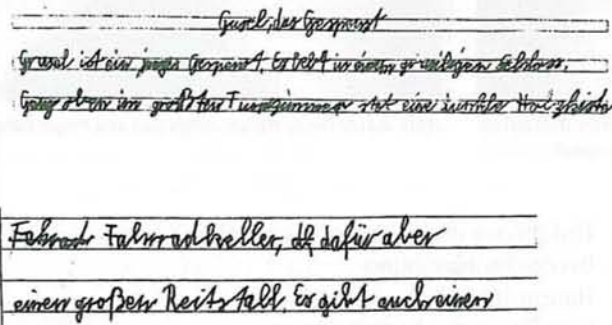 Gusel, das Gespenst
Grusel ist ein junges Gespenst. Er lebt in einem gruseligen Schloss.
Ganz oben im größten Turmzimmer stet eine Holzkiste
Fahrrad Fahrradkeller, dafür aber
einen großen Reitstall. Es gibt auch einen